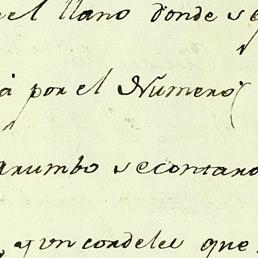 el llano donde se
á por el Numero
rumbo se contaro
y un cordel e que